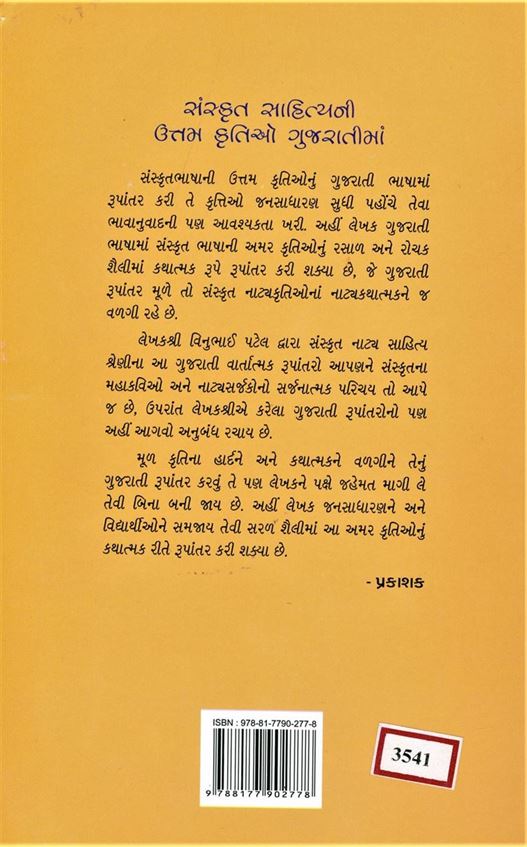 સંસ્કૃત સાહિત્યની
ઉત્તમ કૃતિઓ ગુજરાતીમાં
સંસ્કૃતભાષાની ઉત્તમ કૃતિઓનું ગુજરાતી ભાષામાં
રૂપાંતર કરી તે કૃત્તિઓ જનસાધારણ સુધી પહોંચે તેવા
ભાવાનુવાદની પણ આવશ્યકતા ખરી. અહીં લેખક ગુજરાતી
ભાષામાં સંસ્કૃત ભાષાની અમર કૃતિઓનું રસાળ અને રોચક
શૈલીમાં કથાત્મક રૂપે રૂપાંતર કરી શક્યા છે, જે ગુજરાતી
રૂપાંતર મૂળે તો સંસ્કૃત નાટ્યકૃતિઓનાં નાટ્યકથાત્મકને જ
વળગી રહે છે.
લેખકશ્રી વિનુભાઈ પટેલ દ્વારા સંસ્કૃત નાટ્ય સાહિત્ય
શ્રેણીના આ ગુજરાતી વાર્તાત્મક રૂપાંતરો આપણને સંસ્કૃતના
મહાકવિઓ અને નાટ્યસર્જકોનો સર્જનાત્મક પરિચય તો આપે
જ છે, ઉપરાંત લેખકશ્રીએ કરેલા ગુજરાતી રૂપાંતરોનો પણ
અહીં આગવો અનુબંધ રચાય છે.
મૂળ કૃતિના હાર્દને અને કથાત્મકને વળગીને તેનું
ગુજરાતી રૂપાંતર કરવું તે પણ લેખકને પક્ષે જહેમત માગી લે
તેવી બિના બની જાય છે. અહીં લેખક જનસાધારણને અને
વિદ્યાર્થીઓને સમજાય તેવી સરળ શૈલીમાં આ અમર કૃતિઓનું
કથાત્મક રીતે રૂપાંતર કરી શક્યા છે.
- પ્રકાશક
ISBN : 978-81-7790-277-8
9 788177 902778
3541